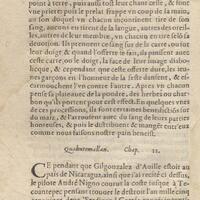 point à terre, puis aussi tost leur chant cesse, & font
leur priere: puis le presstre frappe vn coup de la main,
au son duquel vn chacun incontinent tire de son
sang, aucuns en tirent de la langue, autres des oreil-
les, autres de leur membre, vn chacun en tire selõ sa
deuotion. Ils prennent ce sang sur de la carte, ou sur
leur doigt, & quand l'offrent
auec ceste carte, ou le doigt, la face de leur image diabo-
lique: & cependant que ceste offrande dure, les ieu-
nes garçons en l'honneur de la feste dansent, &
contre l'autre. Apres vn chacun
de la poudre, des herbes au char-
bon qu'ils portent pour cest effect. En quelques vnes de
ces processions, ils font certaines benedictions sur
du mays, & l'arrousent aussi du sang de leurs parties
honteuses, puis le distribuent & mangẽt entr'eux
comme nous faisons nostre pain benist.
Quahutemallan. Chap. 12.
CE pendant que Gilgonzalez d'Auille estoit au
païs de Nicaragua, ainsi que i'ay recité cy dessus,
le pilote André Nigno courut la coste iusque à
Tecoantepec: pensant trouuer le destroit l'an mille cinq